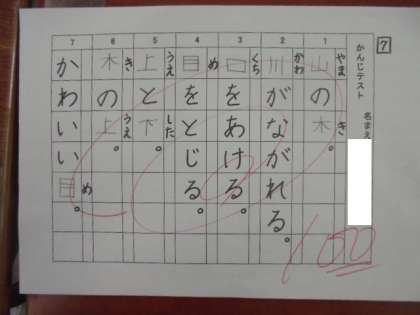 7
かんじテスト 名まえ
1 山の木。 やま き
2 川がながれる。 かわ
3 口をあける。 くち
4 目をとじる。 め
5 上と下。 うえ した
6 木の上。 き うえ
7 かわいい目。 め
100